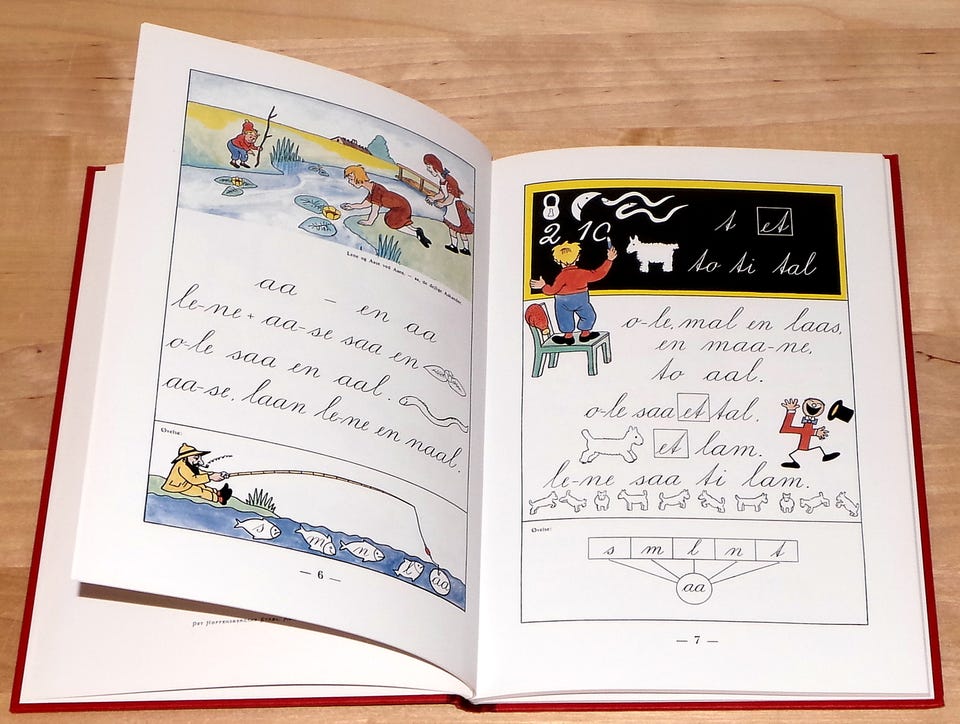 Lene og Aase ved Aaen. — aa, de dejlige Aakander
aa — en aa
le-ne + aa-se saa en
o-le saa en aal.
aa-se, laan le-ne en naal.
Øvelse:
s m n l aa
— 6 —
8
2 10
t et
to ti tal
o-le, mal en laas,
en maa-ne,
to aal.
o-le saa et tal.
et lam.
le-ne saa ti lam.
Øvelse:
s m l n t
aa
— 7 —